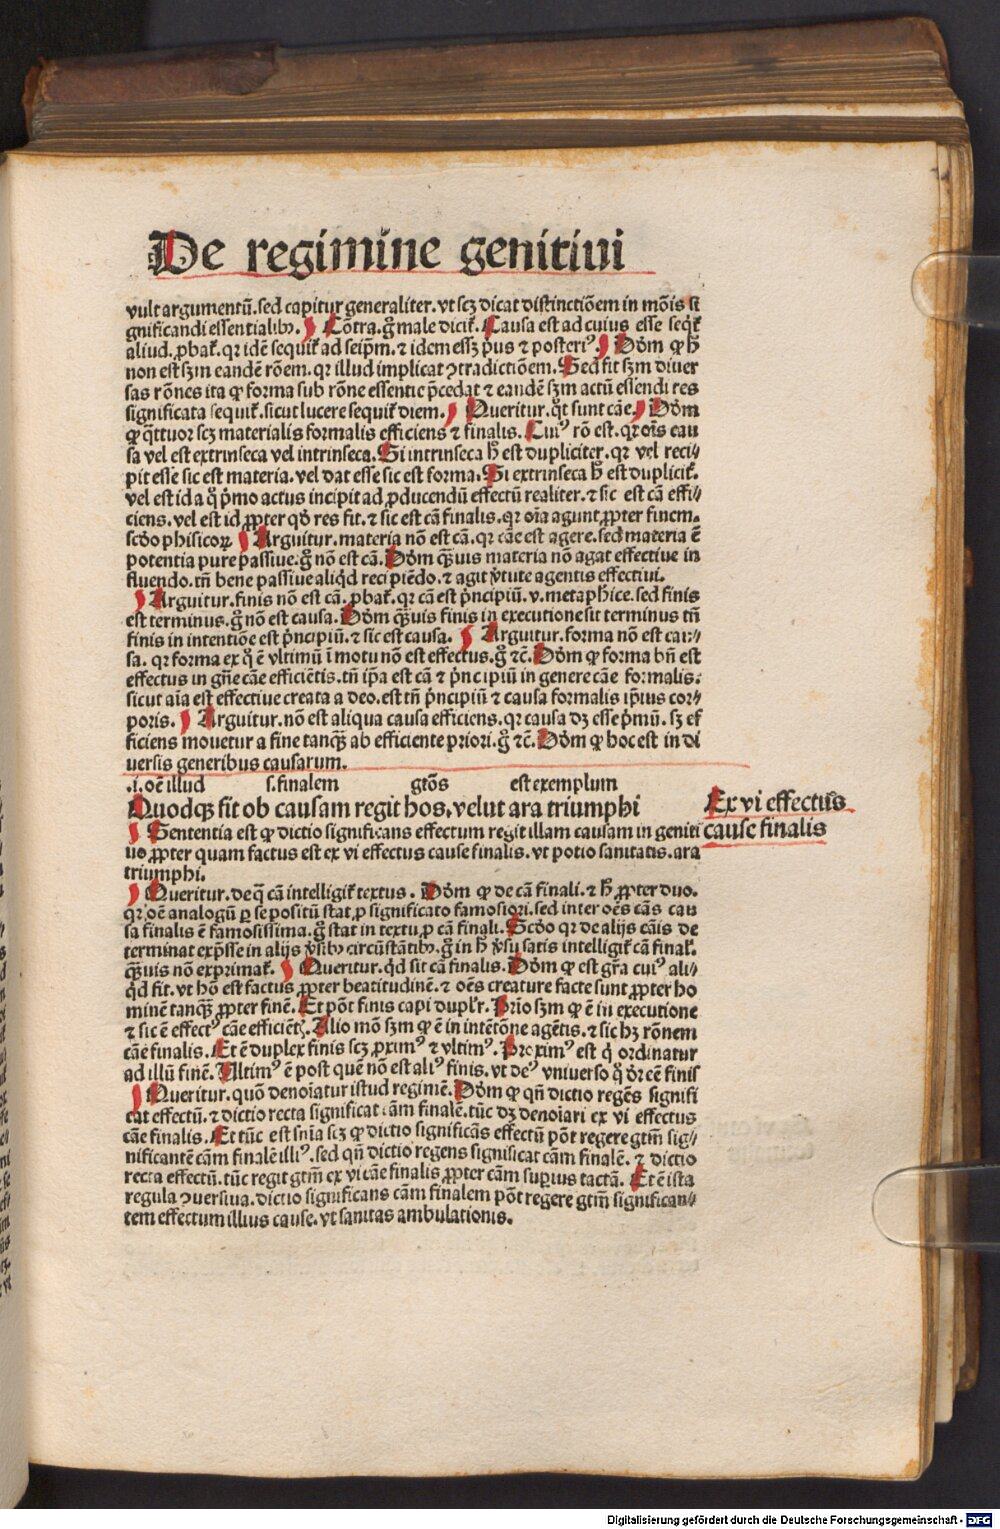 De regimine genitiui
vult argumentū. sed capitur generaliter. vt scꝫ dicat distinctiōem in mōis si
gnificandi essentialibꝰ. Cōtra. gͦ male dicit᷑. Causa est ad cuius esse seqt᷑
aliud. ꝓbat᷑. qꝛ idē sequit᷑ ad seip̄m. ⁊ idem esset p̄us ⁊ posteriꝰ. Dōm ꝙ h̄
non est scꝫm eandē rōem. qꝛ illud implicat ꝯtradictiōem. Sed fit scꝫm diuer
sas rōnes ita ꝙ forma sub rōne essentie p̄cedat ⁊ eandē scꝫm actū essendi res
significata sequit᷑. sicut lucere sequit᷑ diem. Queritur. qͦt sunt cāe. Dōm
ꝙ q̄ttuor scꝫ materialis formalis efficiens ⁊ finalis. Cuiꝰ rō est. qꝛ oīs cau
sa vel est extrinseca vel intrinseca. Si intrinseca h̄ est dupliciter. qꝛ vel reci⸗
pit esse sic est materia. vel dat esse sic est forma. Si extrinseca h̄ est duplicit᷑.
vel est id a q̊ p̄mo actus incipit ad ꝓducendū effectū realiter. ⁊ sic est cā effi⸗
ciens. vel est id ꝓpter qd̄ res fit. ⁊ sic est cā finalis. qꝛ oīa agunt ꝓpter finem.
scd̄o phisicoꝝ Arguitur. materia nō est cā. qꝛ cāe est agere. sed materia ē
potentia pure passiue. gͦ nō est cā. Dōm q̄uis materia nō agat effectiue in
fluendo. tn̄ bene passiue aliqͥd recipiēdo. ⁊ agit v̓tute agentis effectiui.
Arguitur. finis nō est cā. ꝓbat᷑. qꝛ cā est p̄ncipiū. v. metaph̓ice. sed finis
est terminus. gͦ nō est causa. Dōm q̄uis finis in executione sit terminus tn̄
finis in intentiōe est p̄ncipiū. ⁊ sic est causa. Arguitur. forma nō est cau⸗
sa. qꝛ forma ex q̊ ē vltimū ī motu nō est effectus. gͦ ⁊c̄. Dōm ꝙ forma bn̄ est
effectus in gn̄e cāe efficiētis. tn̄ ip̄a est cā ⁊ p̄ncipiū in genere cāe formalis.
sicut aīa est effectiue creata a deo. est tn̄ p̄ncipiū ⁊ causa formalis ip̄ius cor⸗
poris. Arguitur. nō est aliqua causa efficiens. qꝛ causa dꝫ esse p̄mū. sꝫ ef
ficiens mouetur a fine tanq̄ ab efficiente priori. gͦ ⁊c̄. Dōm ꝙ hoc est in di
uersis generibus causarum.
.i. oē illud s. finalem gtōs est exemplum
Quodqꝫ fit ob causam regit hos. velut ara triumphi
Ex vi effectus
cause finalis
Sententia est ꝙ dictio significans effectum regit illam causam in geniti
uo ꝓpter quam factus est ex vi effectus cause finalis. vt potio sanitatis. ara
triumphi.
Queritur. de q̄ cā intelligit᷑ textus. Dōm ꝙ de cā finali. ⁊ h̄ ꝓpter duo.
qꝛ oē analogū ꝑ se positū stat ꝓ significato famosiori. sed inter oēs cās cau
sa finalis ē famosissima. gͦ stat in textu ꝓ cā finali. Scd̄o qꝛ de alijs cāis de
terminat exp̄sse in alijs v̓sibꝰ circūstātibꝰ. gͦ in h̄ v̓su satis intelligit᷑ cā final᷑.
q̄uis nō exprimat᷑. Queritur. qͥd sit cā finalis. Dōm ꝙ est gr̄a cuiꝰ ali⸗
qͥd fit. vt hō est factus ꝓpter beatitudinē. ⁊ oēs creature facte sunt ꝓpter ho
minē tanq̄ ꝓpter finē. Et pōt finis capi dupl᷑r. Prīo scꝫm ꝙ ē in executione
⁊ sic ē effectꝰ cāe efficiētꝭ. Alio mō scꝫm ꝙ ē in intētōne agētis. ⁊ sic hꝫ rōnem
cāe finalis. Et ē duplex finis scꝫ ꝓximꝰ ⁊ vltimꝰ. Proximꝰ est q̊ ordinatur
ad illū finē. Vltimꝰ ē post quē nō est aliꝰ finis. vt deꝰ vniuerso q̊ ōr eē finis
Queritur. quō denoīatur istud regimē. Dōm ꝙ qn̄ dictio regēs signifi
cat effectū. ⁊ dictio recta significat cām finalē. tūc dꝫ denoīari ex vi effectus
cāe finalis. Et tūc est snīa scꝫ ꝙ dictio significās effectū pōt regere gtm̄ sig⸗
nificantē cām finalē illiꝰ. sed qn̄ dictio regens significat cām finalē. ⁊ dictio
recta effectū. tūc regit gtm̄ ex vi cāe finalis ꝓpter cām suꝑius tactā. Et ē ista
regula ꝯuersiua. dictio significans cām finalem pōt regere gtm̄ significan⸗
tem effectum illius cause. vt sanitas ambulationis.
Digitalisierung gefördert durch die Deutsche Forschungsgemeinschaft - DFG